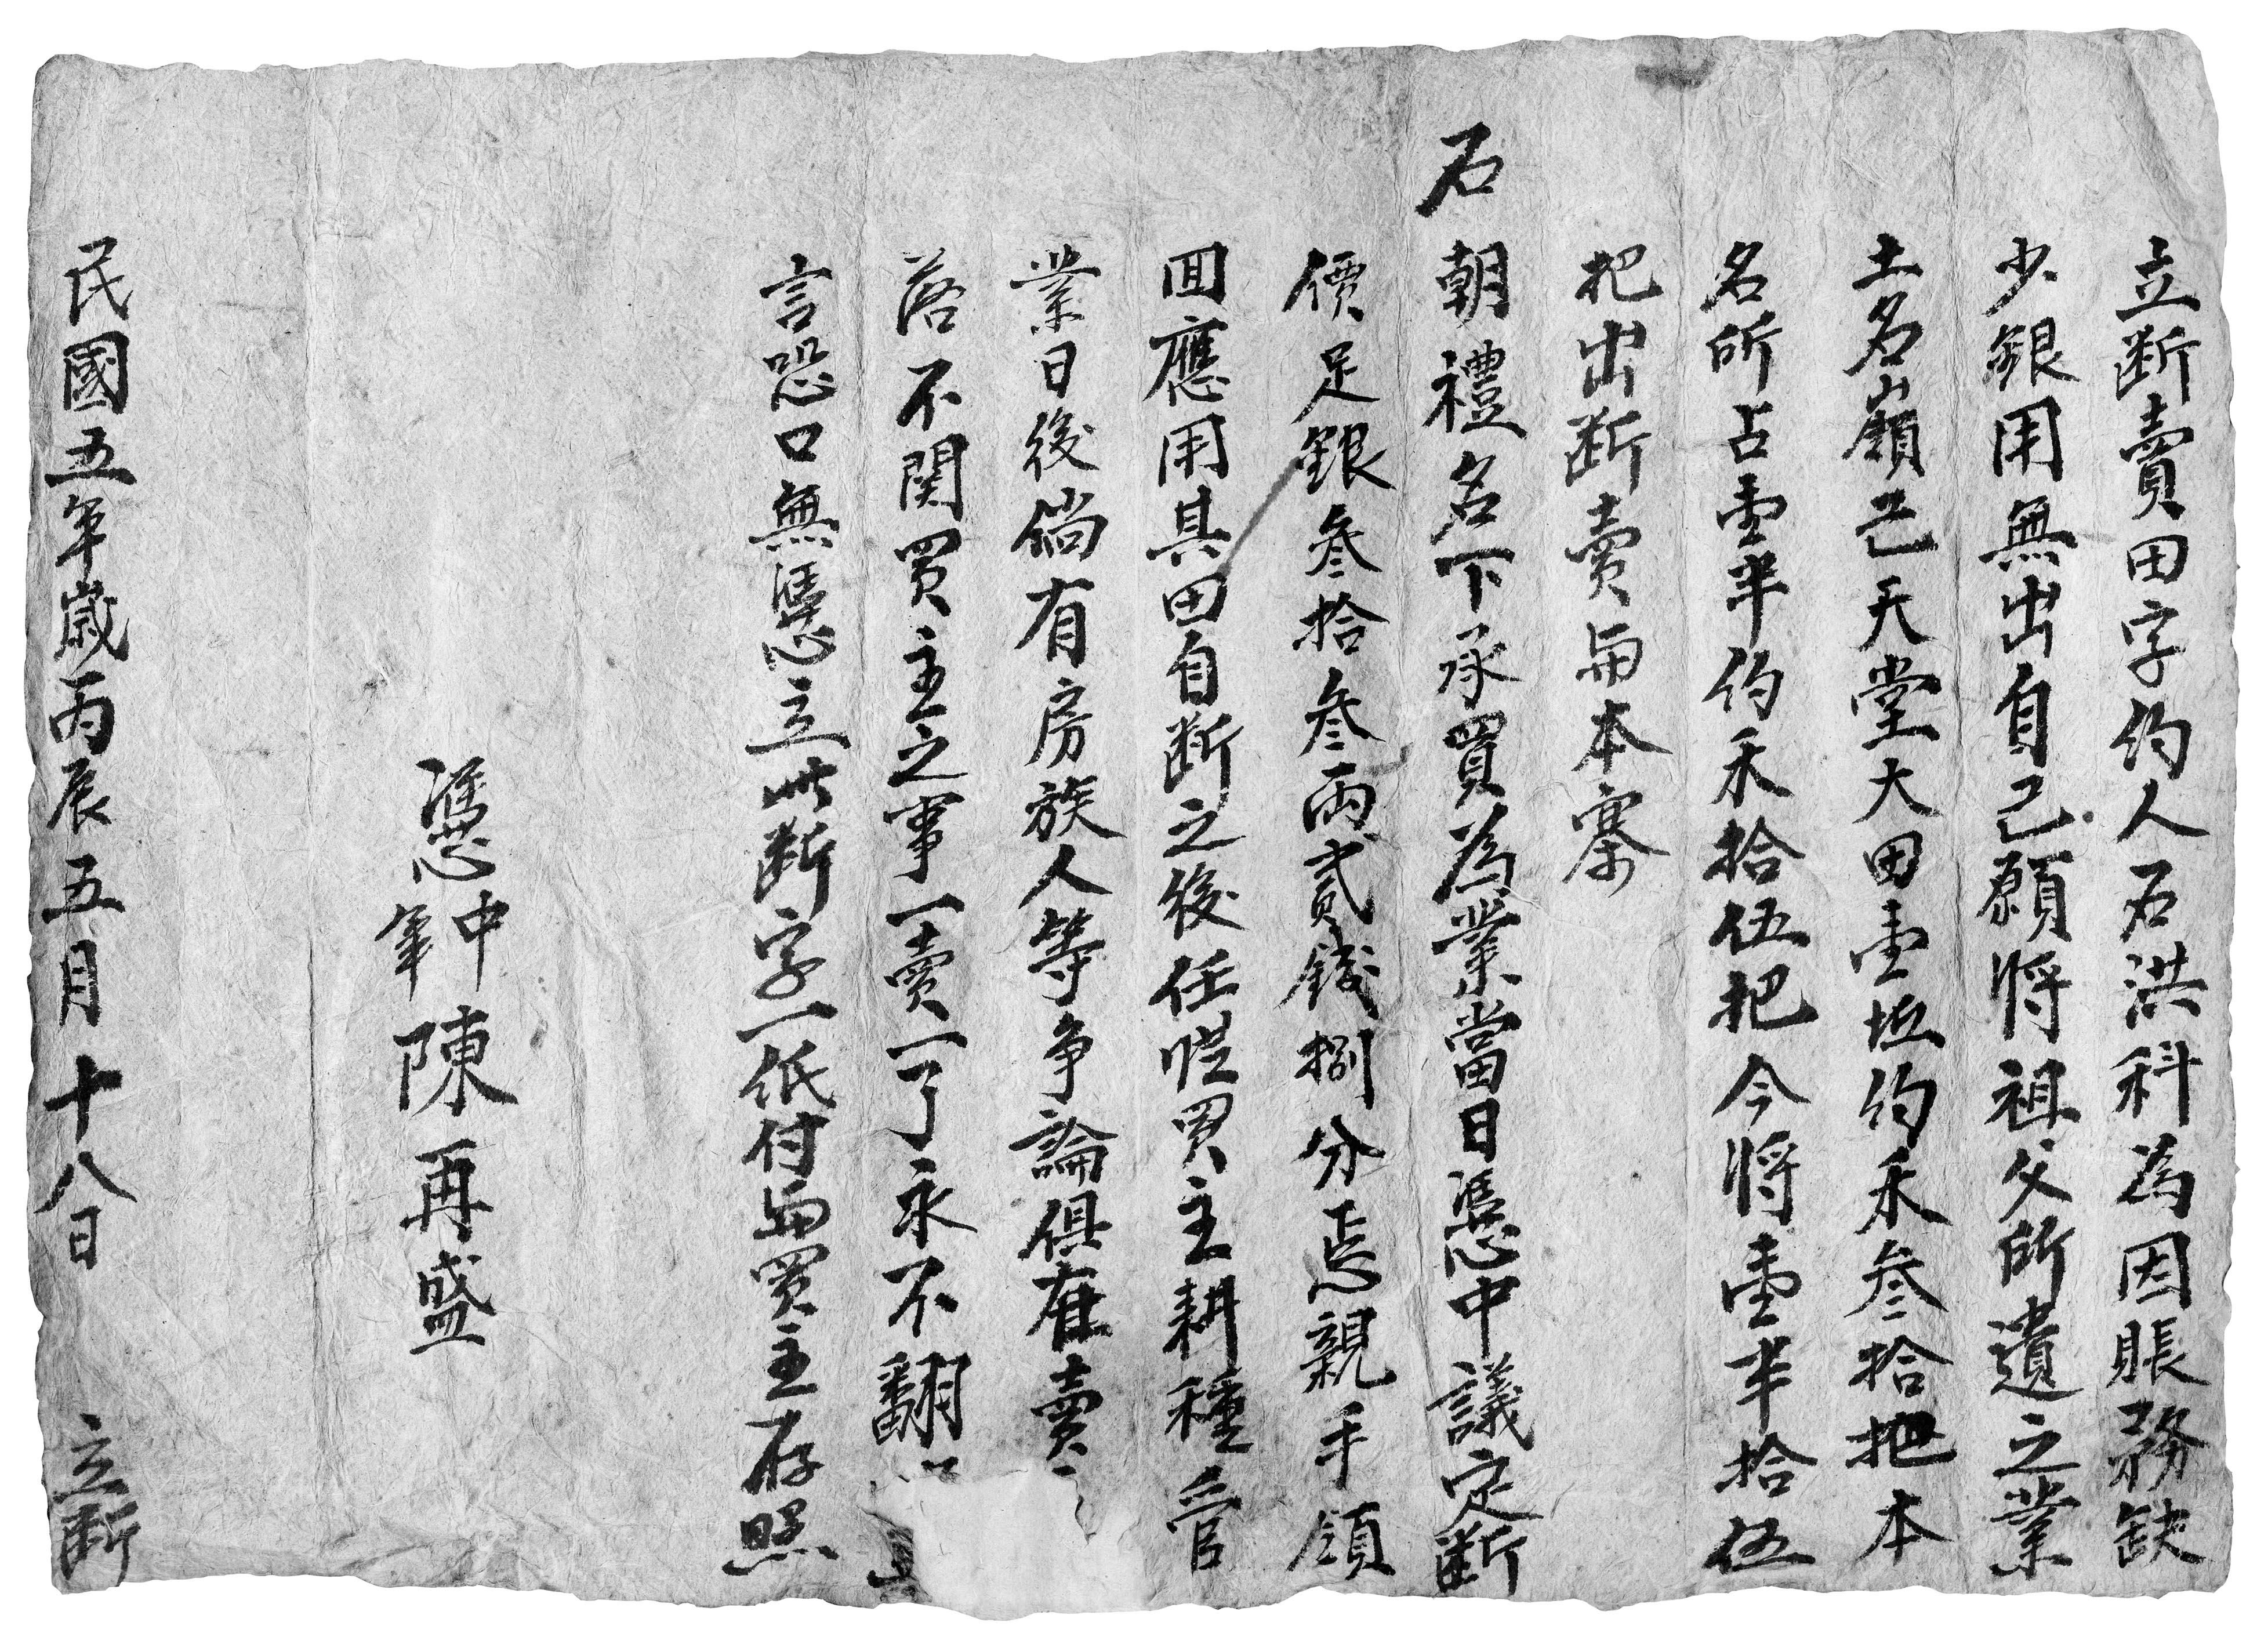 立断賣田字约人石洪科為因賬務缺
少銀用無出自己願將祖父所遺之業
土名嶺芒天堂大田壹坵约禾叁拾把本
名所占壹半约禾拾伍把今將壹半拾伍
把出断賣与本寨
石朝禮名下承買為業當日憑中議定断
價足銀叁拾叁兩贰錢捌分恁親手領
囬應用其田自断之後任凴買主耕種管
業日後倘有房族人等争論俱在賣
落不関買主之事一賣一了永不翻
言恐口無憑立此断字一紙付与買主存照
憑中筆陳再盛
民國五年歲丙辰五月十八日立断